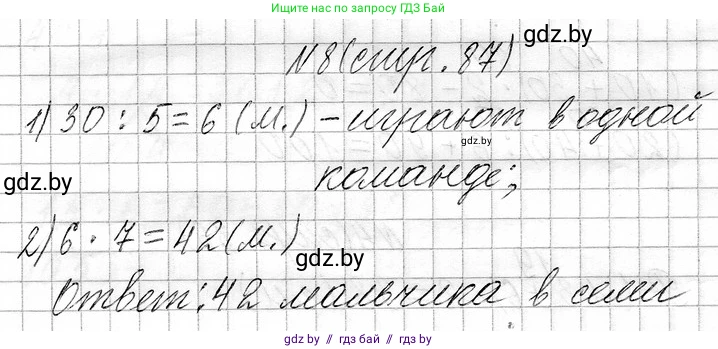 Ищите нас по запросу ГДЗ Бай
gdz.by
N8 (стр. 87)
1) 30 : 5 = 6 (м.) – играют в одной
gdz.by
команде;
gdz.by
2) 6 · 7 = 42 (м.)
gdz.by
Ответ: 42 мальчика в семи
gdz.by // гдз бай // гдз.бел